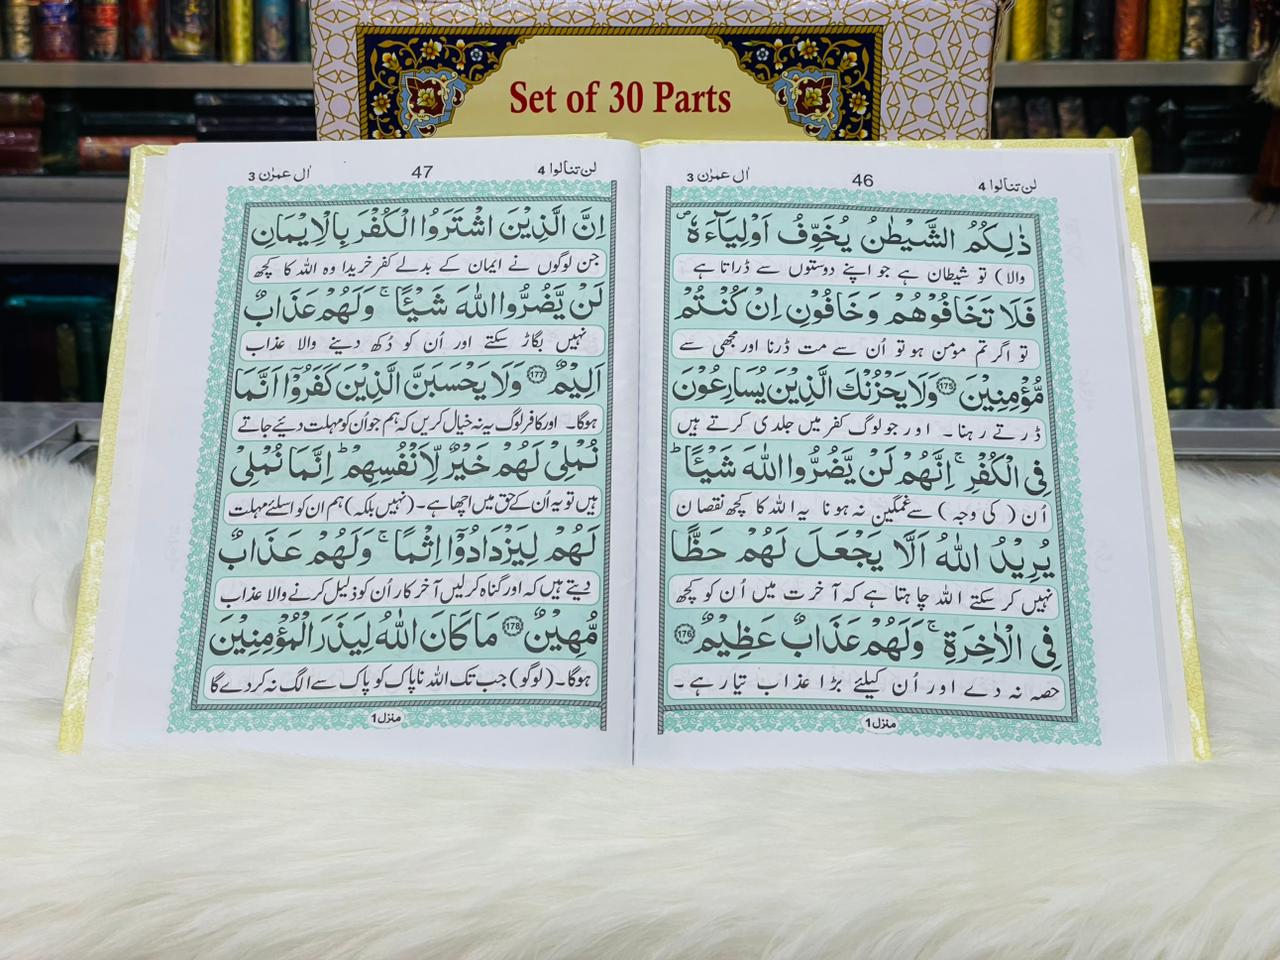 Set of 30 Parts
لن تنالوا 4
46
اٰل عمرٰن 3
ذٰلِكُمُ الشَّيْطٰنُ يُخَوِّفُ اَوْلِيَآءَهٗ ۪
والا) تو شیطان ہے جو اپنے دوستوں سے ڈراتا ہے
فَلَا تَخَافُوْهُمْ وَخَافُوْنِ اِنْ كُنْتُمْ
تو اگر تم مؤمن ہو تو اُن سے مت ڈرنا اور مجھی سے
مُّؤْمِنِيْنَ 175 وَلَا يَحْزُنْكَ الَّذِيْنَ يُسَارِعُوْنَ
ڈرتے رہنا۔ اور جو لوگ کفر میں جلدی کرتے ہیں
فِى الْكُفْرِ ۚ اِنَّهُمْ لَنْ يَّضُرُّوا اللّٰهَ شَيْـًٔا ؕ
اُن (کی وجہ) سے غمگین نہ ہونا یہ اللہ کا کچھ نقصان
يُرِيْدُ اللّٰهُ اَلَّا يَجْعَلَ لَهُمْ حَظًّا
نہیں کر سکتے اللہ چاہتا ہے کہ آخرت میں اُن کو کچھ
فِى الْاٰخِرَةِ ۚ وَلَهُمْ عَذَابٌ عَظِيْمٌ 176
حصہ نہ دے اور اُن کیلئے بڑا عذاب تیار ہے۔
منزل 1
لن تنالوا 4
47
اٰل عمرٰن 3
اِنَّ الَّذِيْنَ اشْتَرَوُا الْكُفْرَ بِالْاِيْمَانِ
جن لوگوں نے ایمان کے بدلے کفر خریدا وہ اللہ کا کچھ
لَنْ يَّضُرُّوا اللّٰهَ شَيْـًٔا ۚ وَلَهُمْ عَذَابٌ
نہیں بگاڑ سکتے اور اُن کو دُکھ دینے والا عذاب
اَلِيْمٌ 177 وَلَا يَحْسَبَنَّ الَّذِيْنَ كَفَرُوْۤا اَنَّمَا
ہوگا۔ اور کافر لوگ یہ نہ خیال کریں کہ ہم جو اُن کو مہلت دیئے جاتے
نُمْلِىْ لَهُمْ خَيْرٌ لِّاَنْفُسِهِمْ ؕ اِنَّمَا نُمْلِىْ
ہیں تو یہ اُن کے حق میں اچھا ہے۔ (نہیں بلکہ) ہم ان کو اسلئے مہلت
لَهُمْ لِيَزْدَادُوْۤا اِثْمًا ۚ وَلَهُمْ عَذَابٌ
دیتے ہیں کہ اور گناہ کر لیں آخر کار اُن کو ذلیل کرنے والا عذاب
مُّهِيْنٌ 178 مَا كَانَ اللّٰهُ لِيَذَرَ الْمُؤْمِنِيْنَ
ہوگا۔ (لوگو) جب تک اللہ ناپاک کو پاک سے الگ نہ کر دے گا
منزل 1